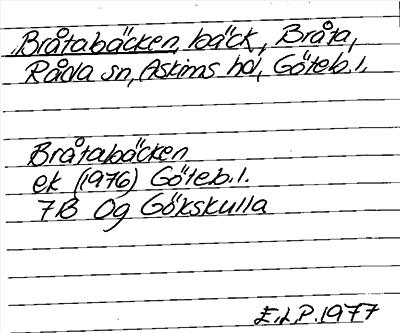 Bråtabäcken, bäck, Bråta,
Råda sn, Askims hd, Göteb.l.
Bråtabäcken
ek (1976) Göteb.l.
7B 0g Gökskulla
E.L.P. 1977